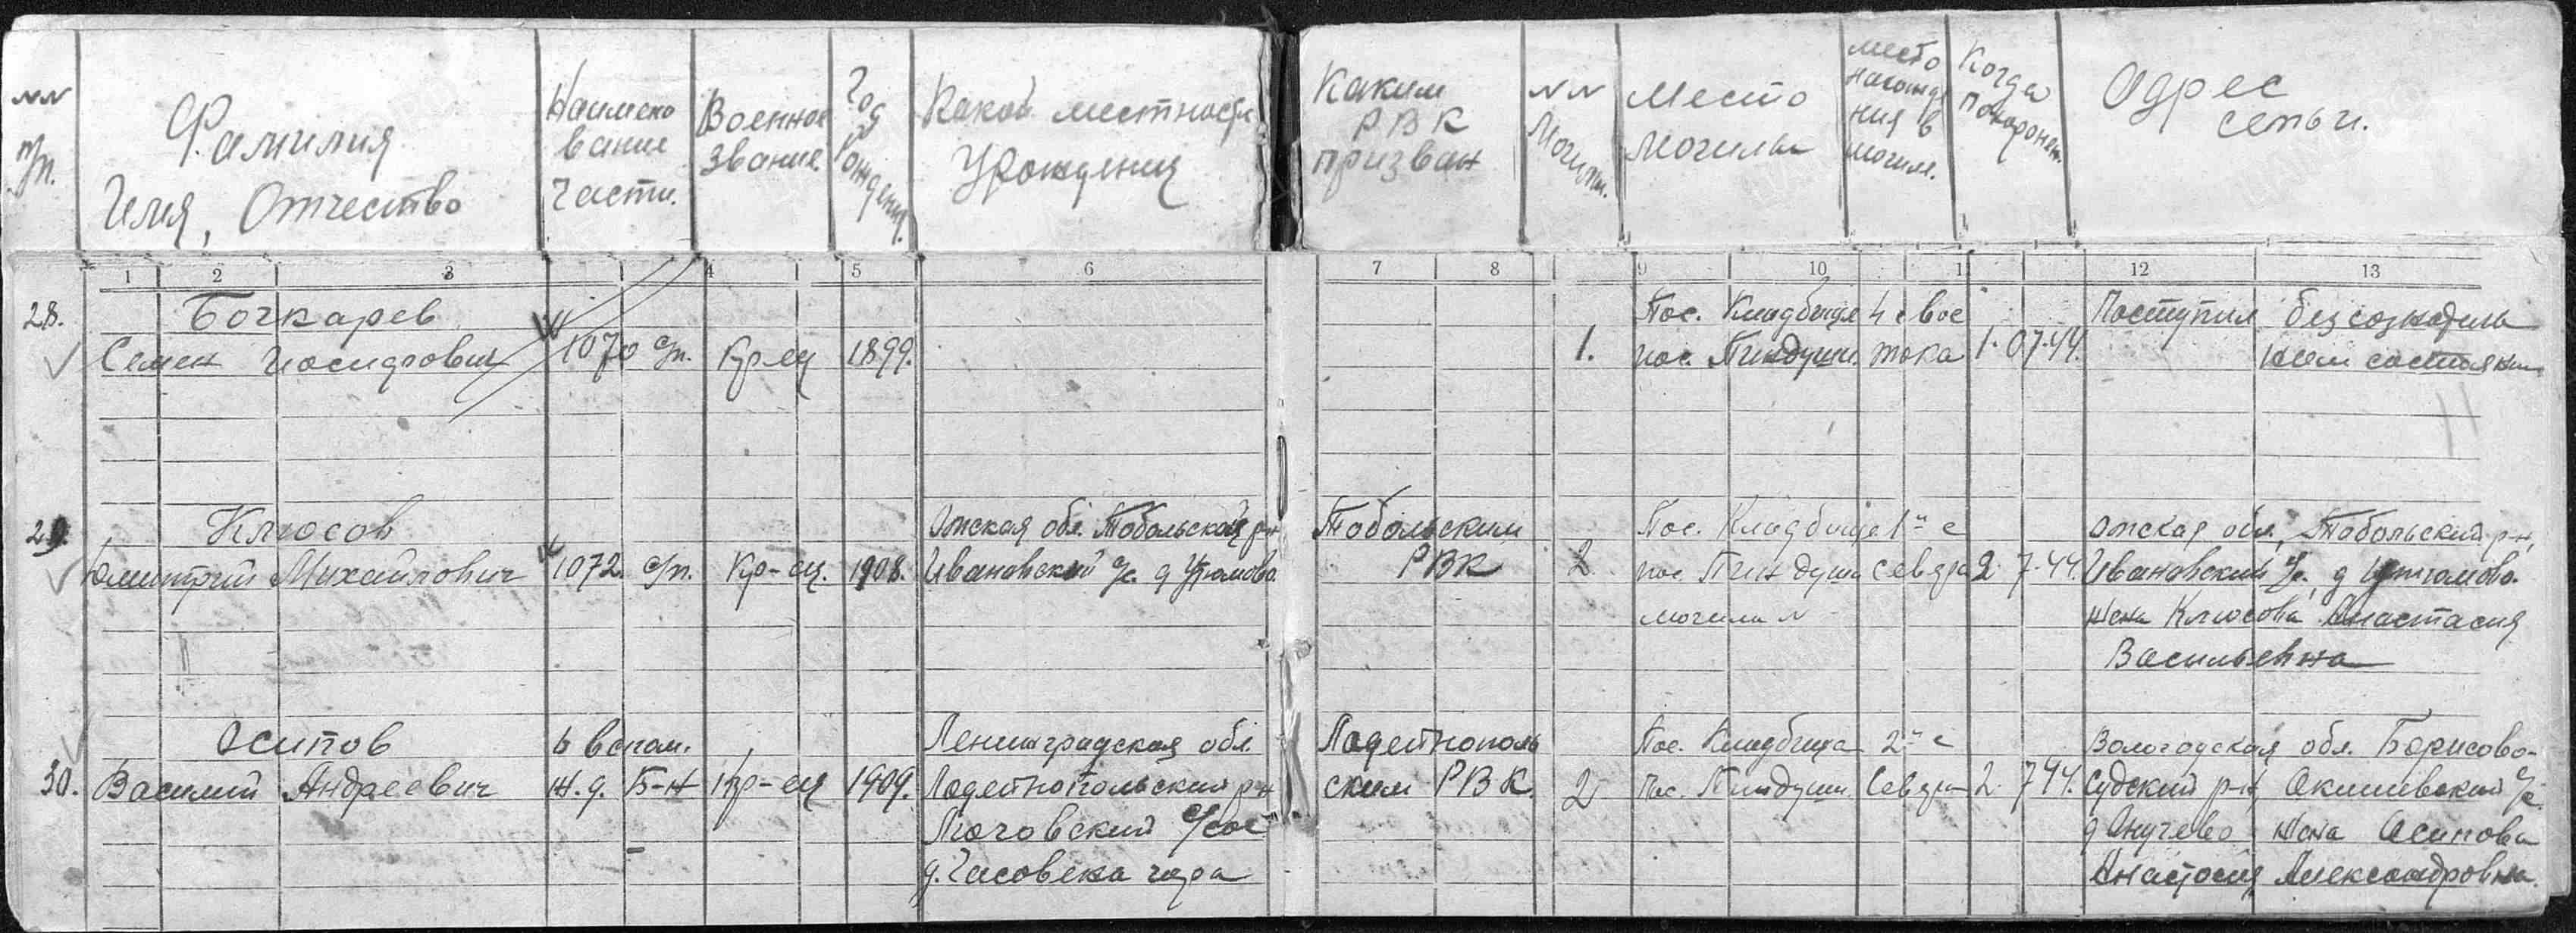 NN п/п.
Фамилия
Имя, Отчество
Наимено
вание
части.
Военное
звание.
Год рождения.
Какой местности
Урожденец
Каким
РВК
призван
NN Могилы.
Место
Могилы
место
нахожде
ния в
могиле.
Когда
похоронен.
Адрес
семьи.
1 2 3 4 5 6 7 8 9 10 11 12 13
28.
Бочкарев
Семен Иосифович
1070 с/п.
Кр-ец
1899.
1.
Пос. Кладбище
пос. Пиндуши.
4 с вос
тока
1.07.44.
Поступил без сознатель
ном состоянии
29.
Клюсов
Дмитрий Михайлович
1072 с/п.
Кр-ец.
1908.
Омская обл. Тобольский р-н
Ивановский с/с. д
Тобольским
РВК
2.
Пос. Кладбище
пос. Пиндуши
могила N
1й с
севера
2.7.44.
Омская обл., Тобольский р-н,
Ивановский с/с., д
жена Клюсова Анастасия
Васильевна
30.
Осипов
Василий Андреевич
6 вспом.
ж.д. Б-н
Кр-ец
1909.
Ленинградская обл.
Лодейнопольский р-н
с/сов
д. гора
Лодейнополь
ским РВК.
2
Пос. Кладбища
Пос. Пиндуши.
2й с
Севера
2.7 44.
Вологодская обл. Борисово-
Судский р-н, с/с.
д жена Осипова
Анастасия Александровна.